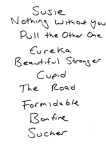 Susie
Nothing without you
Pull the Other One
Eureka
Beautiful Stranger
Cupid
The Road
Formidable
Bonfire
Sucker